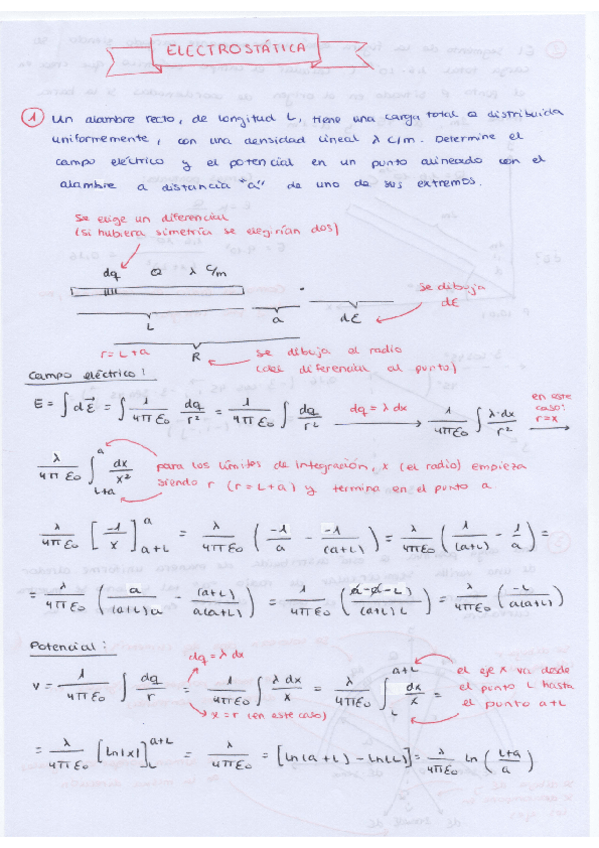 ELECTROSTÁTICA
1 Un alambre recto, de longitud L, tiene una carga total Q distribuida
uniformemente, con una densidad lineal λ C/m. Determine el
campo eléctrico y el potencial en un punto alineado con el
alambre a distancia "a" de uno de sus extremos.
Se elige un diferencial
(si hubiera simetría se elegirían dos)
dq Q λ C/m
se dibuja
dE
L a dE
r = L + a R
se dibuja el radio
(del diferencial al punto)
Campo eléctrico:
E = ∫ dE⃗ = ∫ 1/4πε₀ dq/r² = 1/4πε₀ ∫ dq/r² dq = λ dx → 1/4πε₀ ∫ λ·dx/r² en este caso: r=x →
λ/4πε₀ ∫_{L+a}^{a} dx/x² para los límites de integración, x (el radio) empieza
siendo r (r = L+a) y termina en el punto a.
λ/4πε₀ [-1/x]_{a+L}^{a} = λ/4πε₀ (-1/a - -1/(a+L)) = λ/4πε₀ (1/(a+L) - 1/a) =
= λ/4πε₀ (a/(a+L)a - (a+L)/a(a+L)) = 1/4πε₀ (a-a-L/(a+L)L) = λ/4πε₀ (-L/a(a+L))
Potencial:
dq = λ dx
V = 1/4πε₀ ∫ dq/r = 1/4πε₀ ∫ λ dx/x = λ/4πε₀ ∫_{L}^{a+L} dx/x
x = r (en este caso)
el eje x va desde
el punto L hasta
el punto a+L
= λ/4πε₀ [ln|x|]_{L}^{a+L} = λ/4πε₀ = [ln(a+L) - ln(L)] = λ/4πε₀ ln (L+a/a)